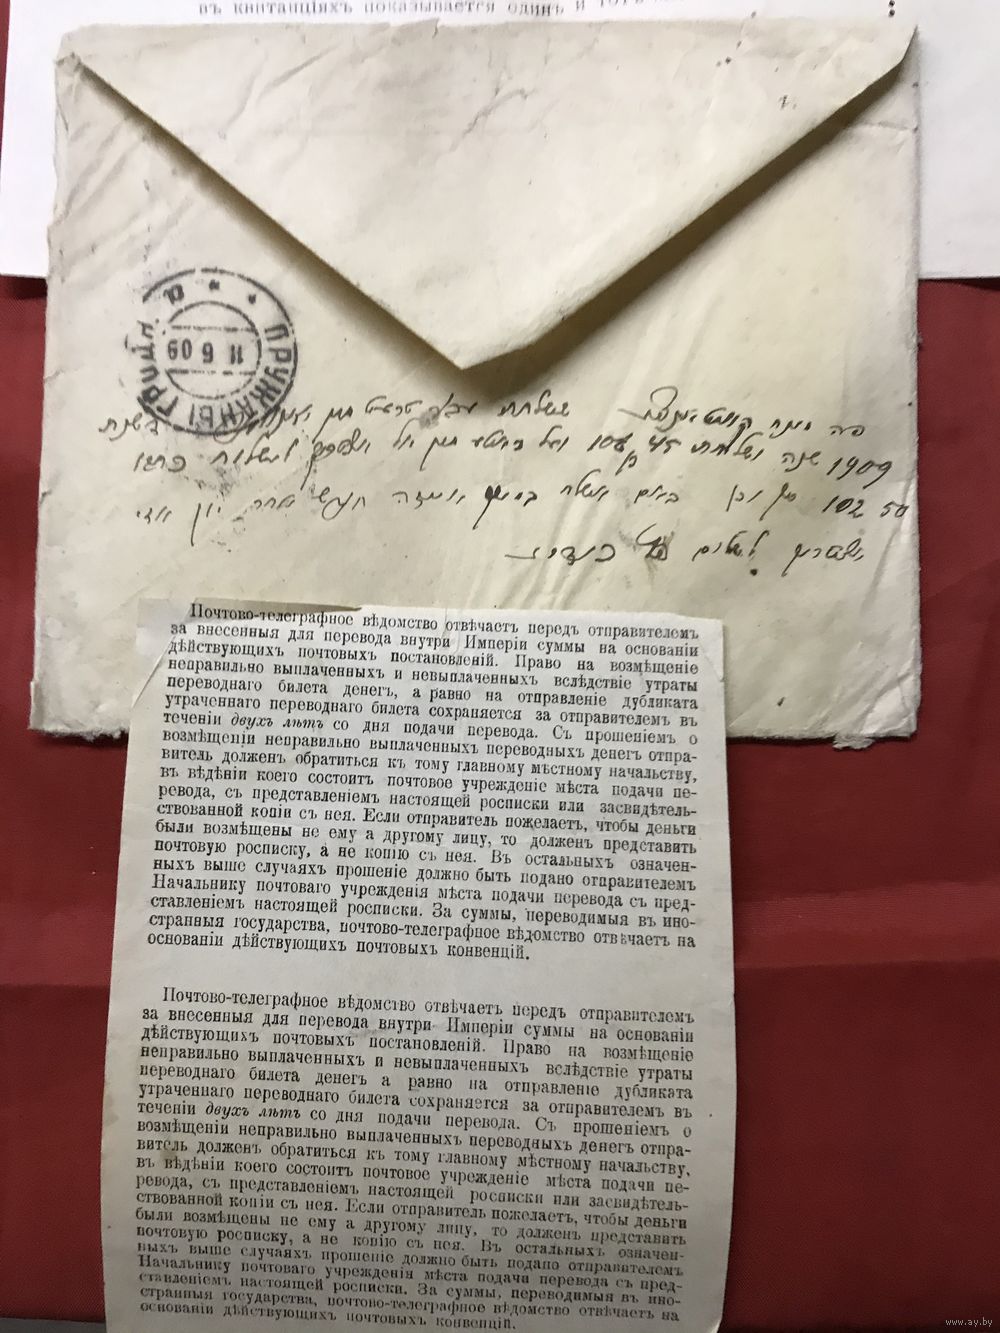 въ квитанціяхъ показывается одинъ и
ПРУЖАНЫ ГРОДН.
11 6 09
1909 שנה 45 108
102 50
Почтово-телеграфное вѣдомство отвѣчаетъ передъ отправителемъ
за внесенныя для перевода внутри Имперіи суммы на основаніи
дѣйствующихъ почтовыхъ постановленій. Право на возмѣщеніе
неправильно выплаченныхъ и невыплаченныхъ вслѣдствіе утраты
переводнаго билета денегъ, а равно на отправленіе дубликата
утраченнаго переводнаго билета сохраняется за отправителемъ въ
теченіи двухъ лѣтъ со дня подачи перевода. Съ прошеніемъ о
возмѣщеніи неправильно выплаченныхъ переводныхъ денегъ отпра-
витель долженъ обратиться къ тому главному мѣстному начальству,
въ вѣдѣніи коего состоитъ почтовое учрежденіе мѣста подачи пе-
ревода, съ представленіемъ настоящей росписки или засвидѣтель-
ствованной копіи съ нея. Если отправитель пожелаетъ, чтобы деньги
были возмѣщены не ему а другому лицу, то долженъ представить
почтовую росписку, а не копію съ нея. Въ остальныхъ означен-
ныхъ выше случаяхъ прошеніе должно быть подано отправителемъ
Начальнику почтоваго учрежденія мѣста подачи перевода съ пред-
ставленіемъ настоящей росписки. За суммы, переводимыя въ ино-
странныя государства, почтово-телеграфное вѣдомство отвѣчаетъ на
основаніи дѣйствующихъ почтовыхъ конвенцій.
Почтово-телеграфное вѣдомство отвѣчаетъ передъ отправителемъ
за внесенныя для перевода внутри Имперіи суммы на основаніи
дѣйствующихъ почтовыхъ постановленій. Право на возмѣщеніе
неправильно выплаченныхъ и невыплаченныхъ вслѣдствіе утраты
переводнаго билета денегъ а равно на отправленіе дубликата
утраченнаго переводнаго билета сохраняется за отправителемъ въ
теченіи двухъ лѣтъ со дня подачи перевода. Съ прошеніемъ о
возмѣщеніи неправильно выплаченныхъ переводныхъ денегъ отпра-
витель долженъ обратиться къ тому главному мѣстному начальству,
въ вѣдѣніи коего состоитъ почтовое учрежденіе мѣста подачи пе-
ревода, съ представленіемъ настоящей росписки или засвидѣтель-
ствованной копіи съ нея. Если отправитель пожелаетъ, чтобы деньги
были возмѣщены не ему а другому лицу, то долженъ представить
почтовую росписку, а не копію съ нея. Въ остальныхъ означен-
ныхъ выше случаяхъ прошеніе должно быть подано отправителемъ
Начальнику почтоваго учрежденія мѣста подачи перевода съ пред-
ставленіемъ настоящей росписки. За суммы, переводимыя въ ино-
странныя государства, почтово-телеграфное вѣдомство отвѣчаетъ на
основаніи дѣйствующихъ почтовыхъ конвенцій.
www.ay.by